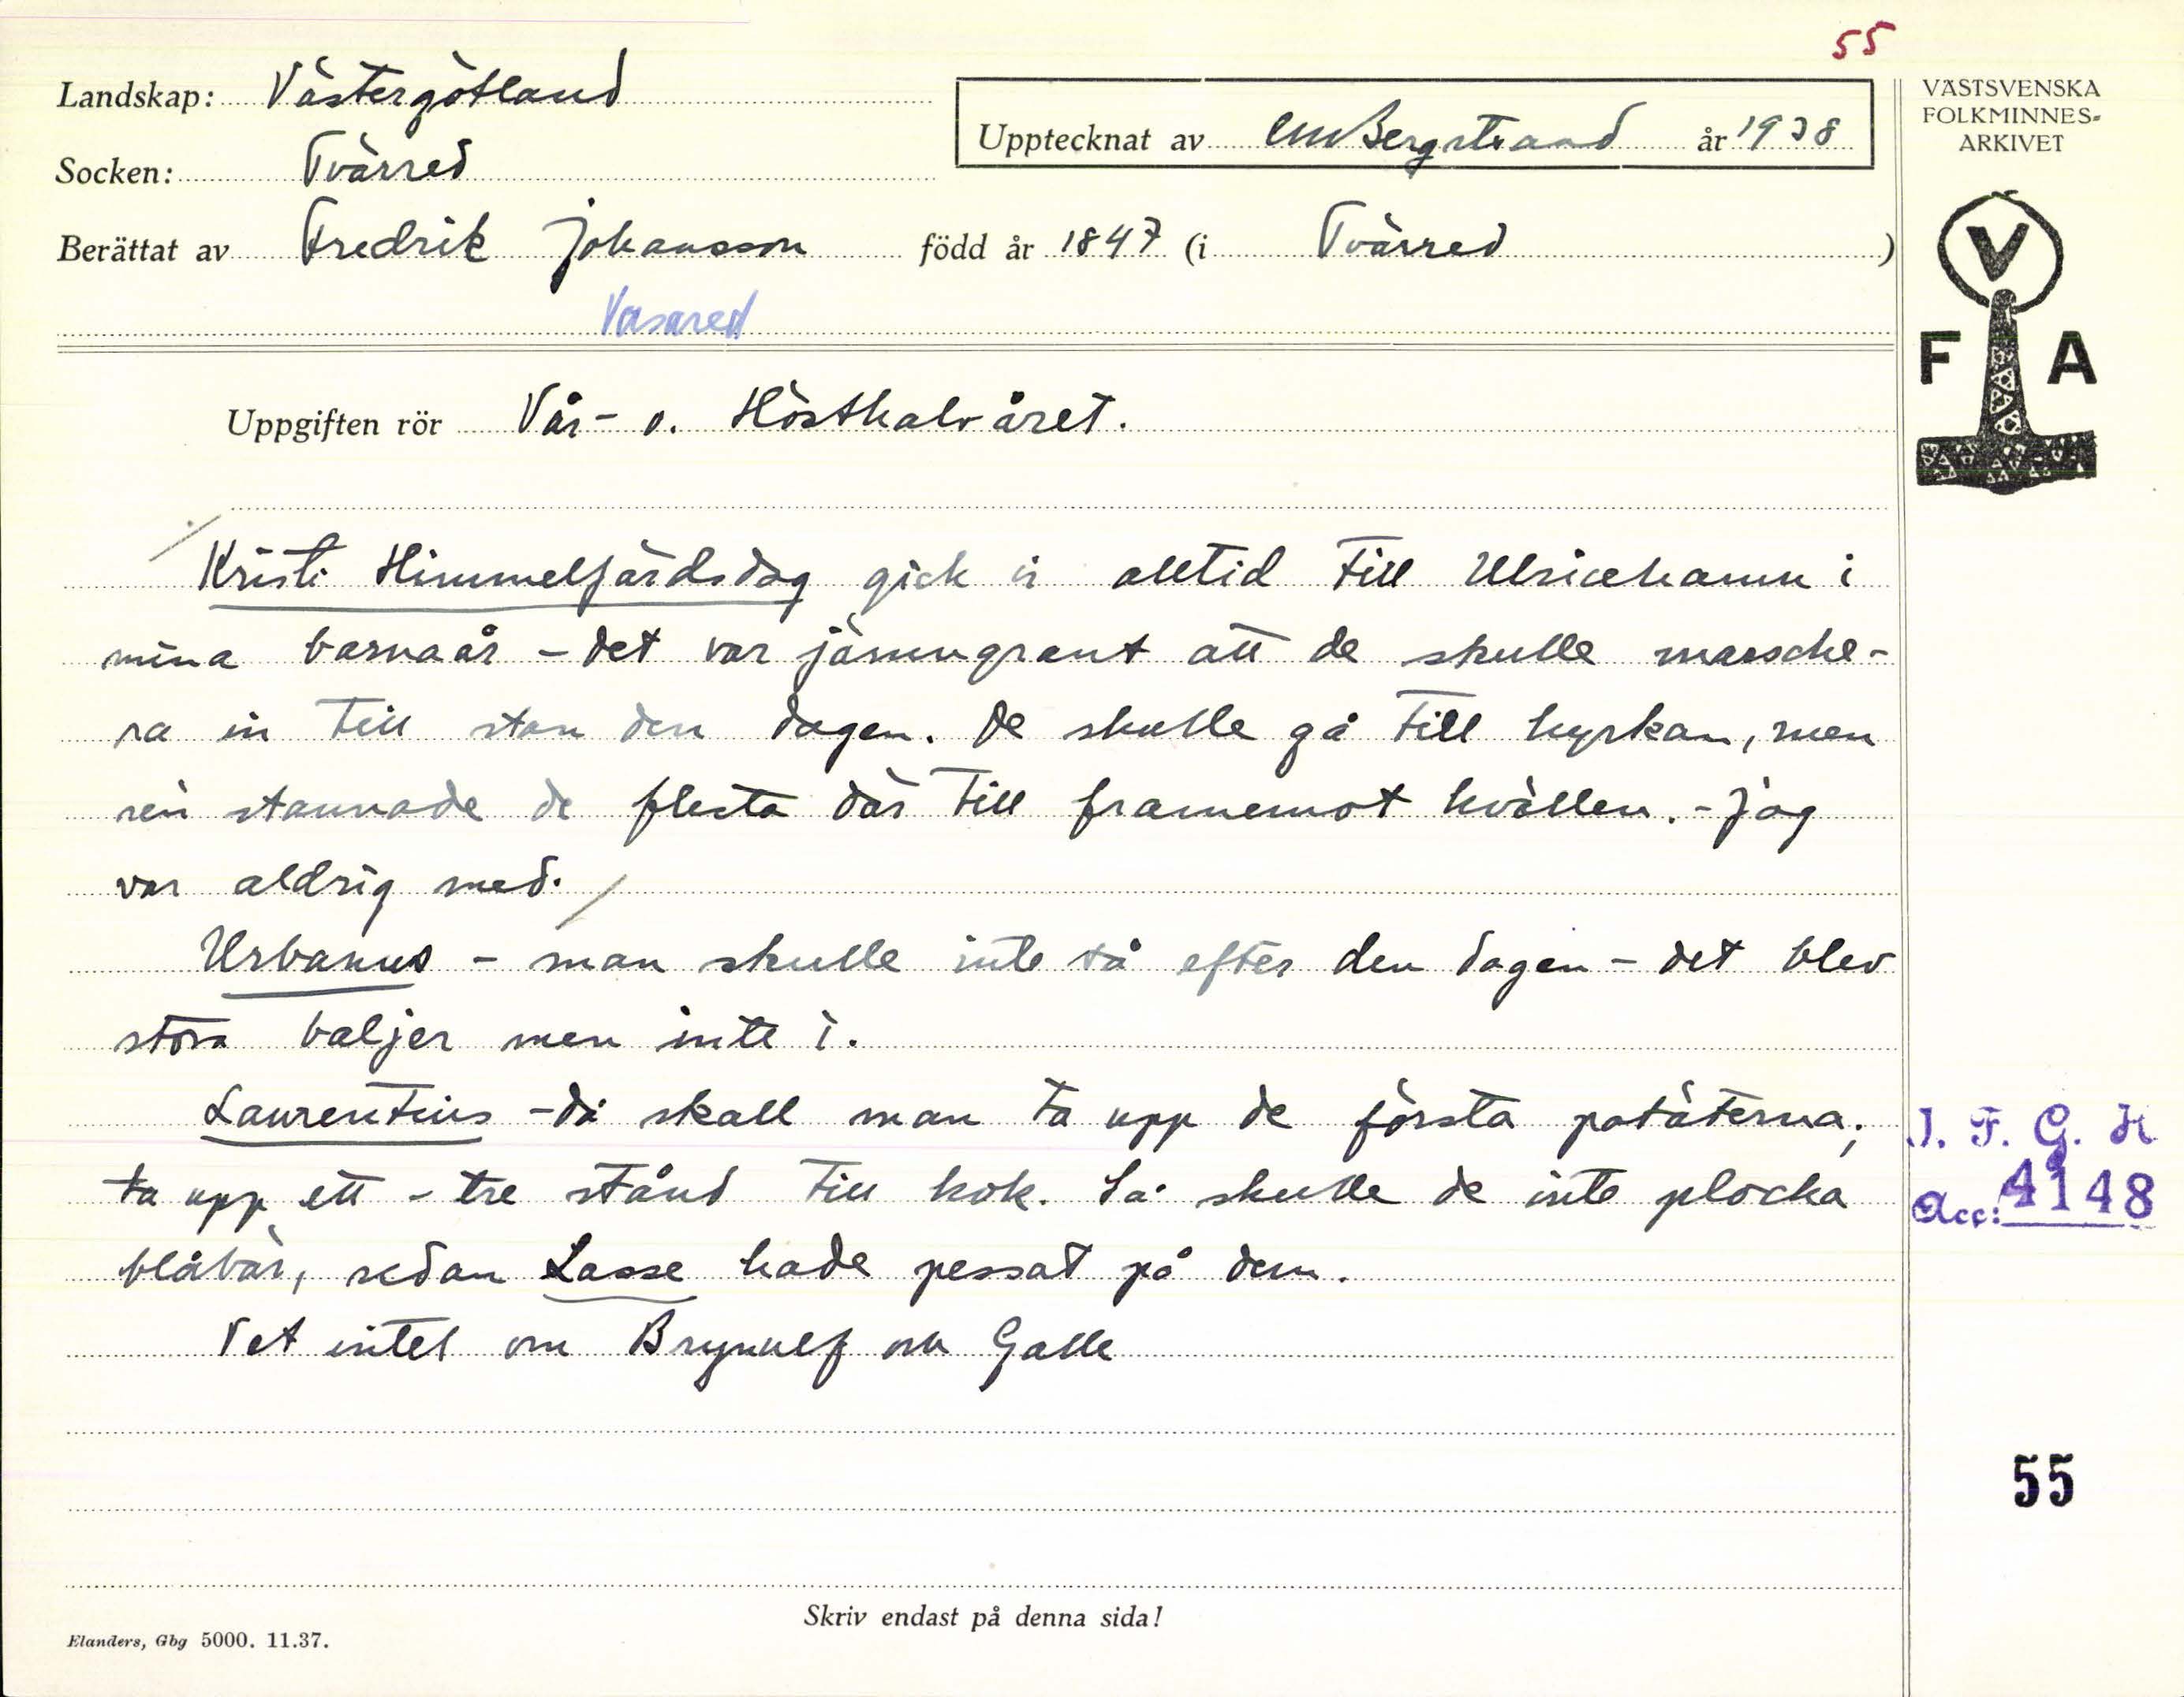 55
Landskap: Västergötland
Upptecknat av CM Bergstrand år 1938
Socken: Tvärred
Berättat av Fredrik Johansson född år 1847 (i Tvärred)
Vasared
VÄSTSVENSKA
FOLKMINNES-
ARKIVET
V
F A
Uppgiften rör Vår- o. Hösthalvåret.
Kristi Himmelfärdsdag gick vi alltid till Ulricehamn i
mina barnaår - det var jämngrant att de skulle marsche-
ra in till stan den dagen. De skulle gå till kyrkan, men
sen stannade de flesta där till framemot kvällen. - Jag
var aldrig med.
Urbanus - man skulle inte så efter den dagen - det blev
stora baljer men inte i.
Laurentius - då skall man ta upp de första potäterna;
ta upp ett - tre stånd till kok. Så skulle de inte plocka
blåbär, sedan Lasse hade pessat på dem.
Vet intet om Brynulf och Galle
I. F. G. H
Acc: 4148
55
Skriv endast på denna sida!
Elanders, Gbg 5000. 11.37.